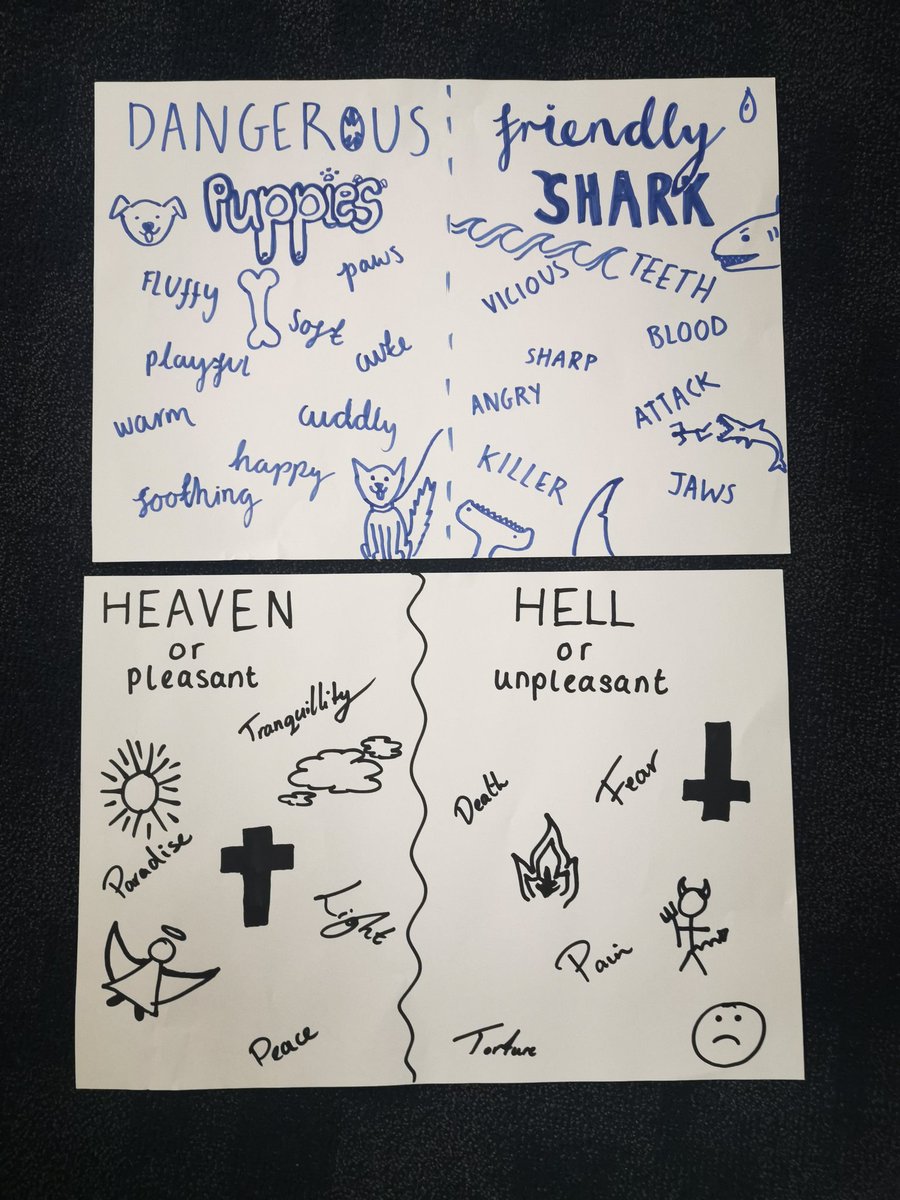 DANGEROUS
Puppies
Fluffy
paws
soft
playful
cute
warm
cuddly
happy
soothing
friendly
SHARK
VICIOUS
TEETH
BLOOD
SHARP
ANGRY
ATTACK
KILLER
JAWS
HEAVEN
or
pleasant
Tranquillity
Paradise
Light
Peace
HELL
or
unpleasant
Death
Fear
Pain
Torture